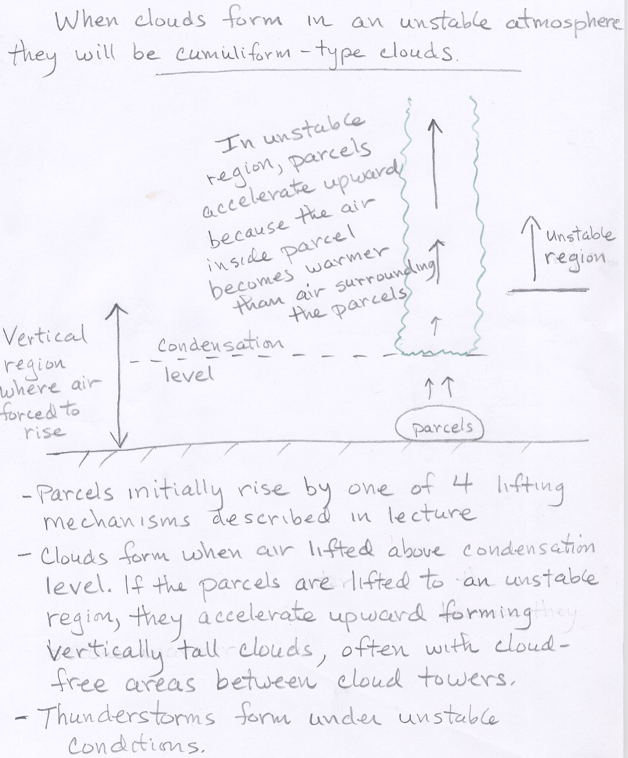 When clouds form in an unstable atmosphere
they will be cumuliform-type clouds.
In unstable
region, parcels
accelerate upward
because the air
inside parcel
becomes warmer
than air surrounding
the parcels
Unstable
region
Vertical
region
where air
forced to
rise
condensation
level
parcels
- Parcels initially rise by one of 4 lifting
mechanisms described in lecture
- Clouds form when air lifted above condensation
level. If the parcels are lifted to an unstable
region, they accelerate upward forming
vertically tall clouds, often with cloud-
free areas between cloud towers.
- Thunderstorms form under unstable
conditions.